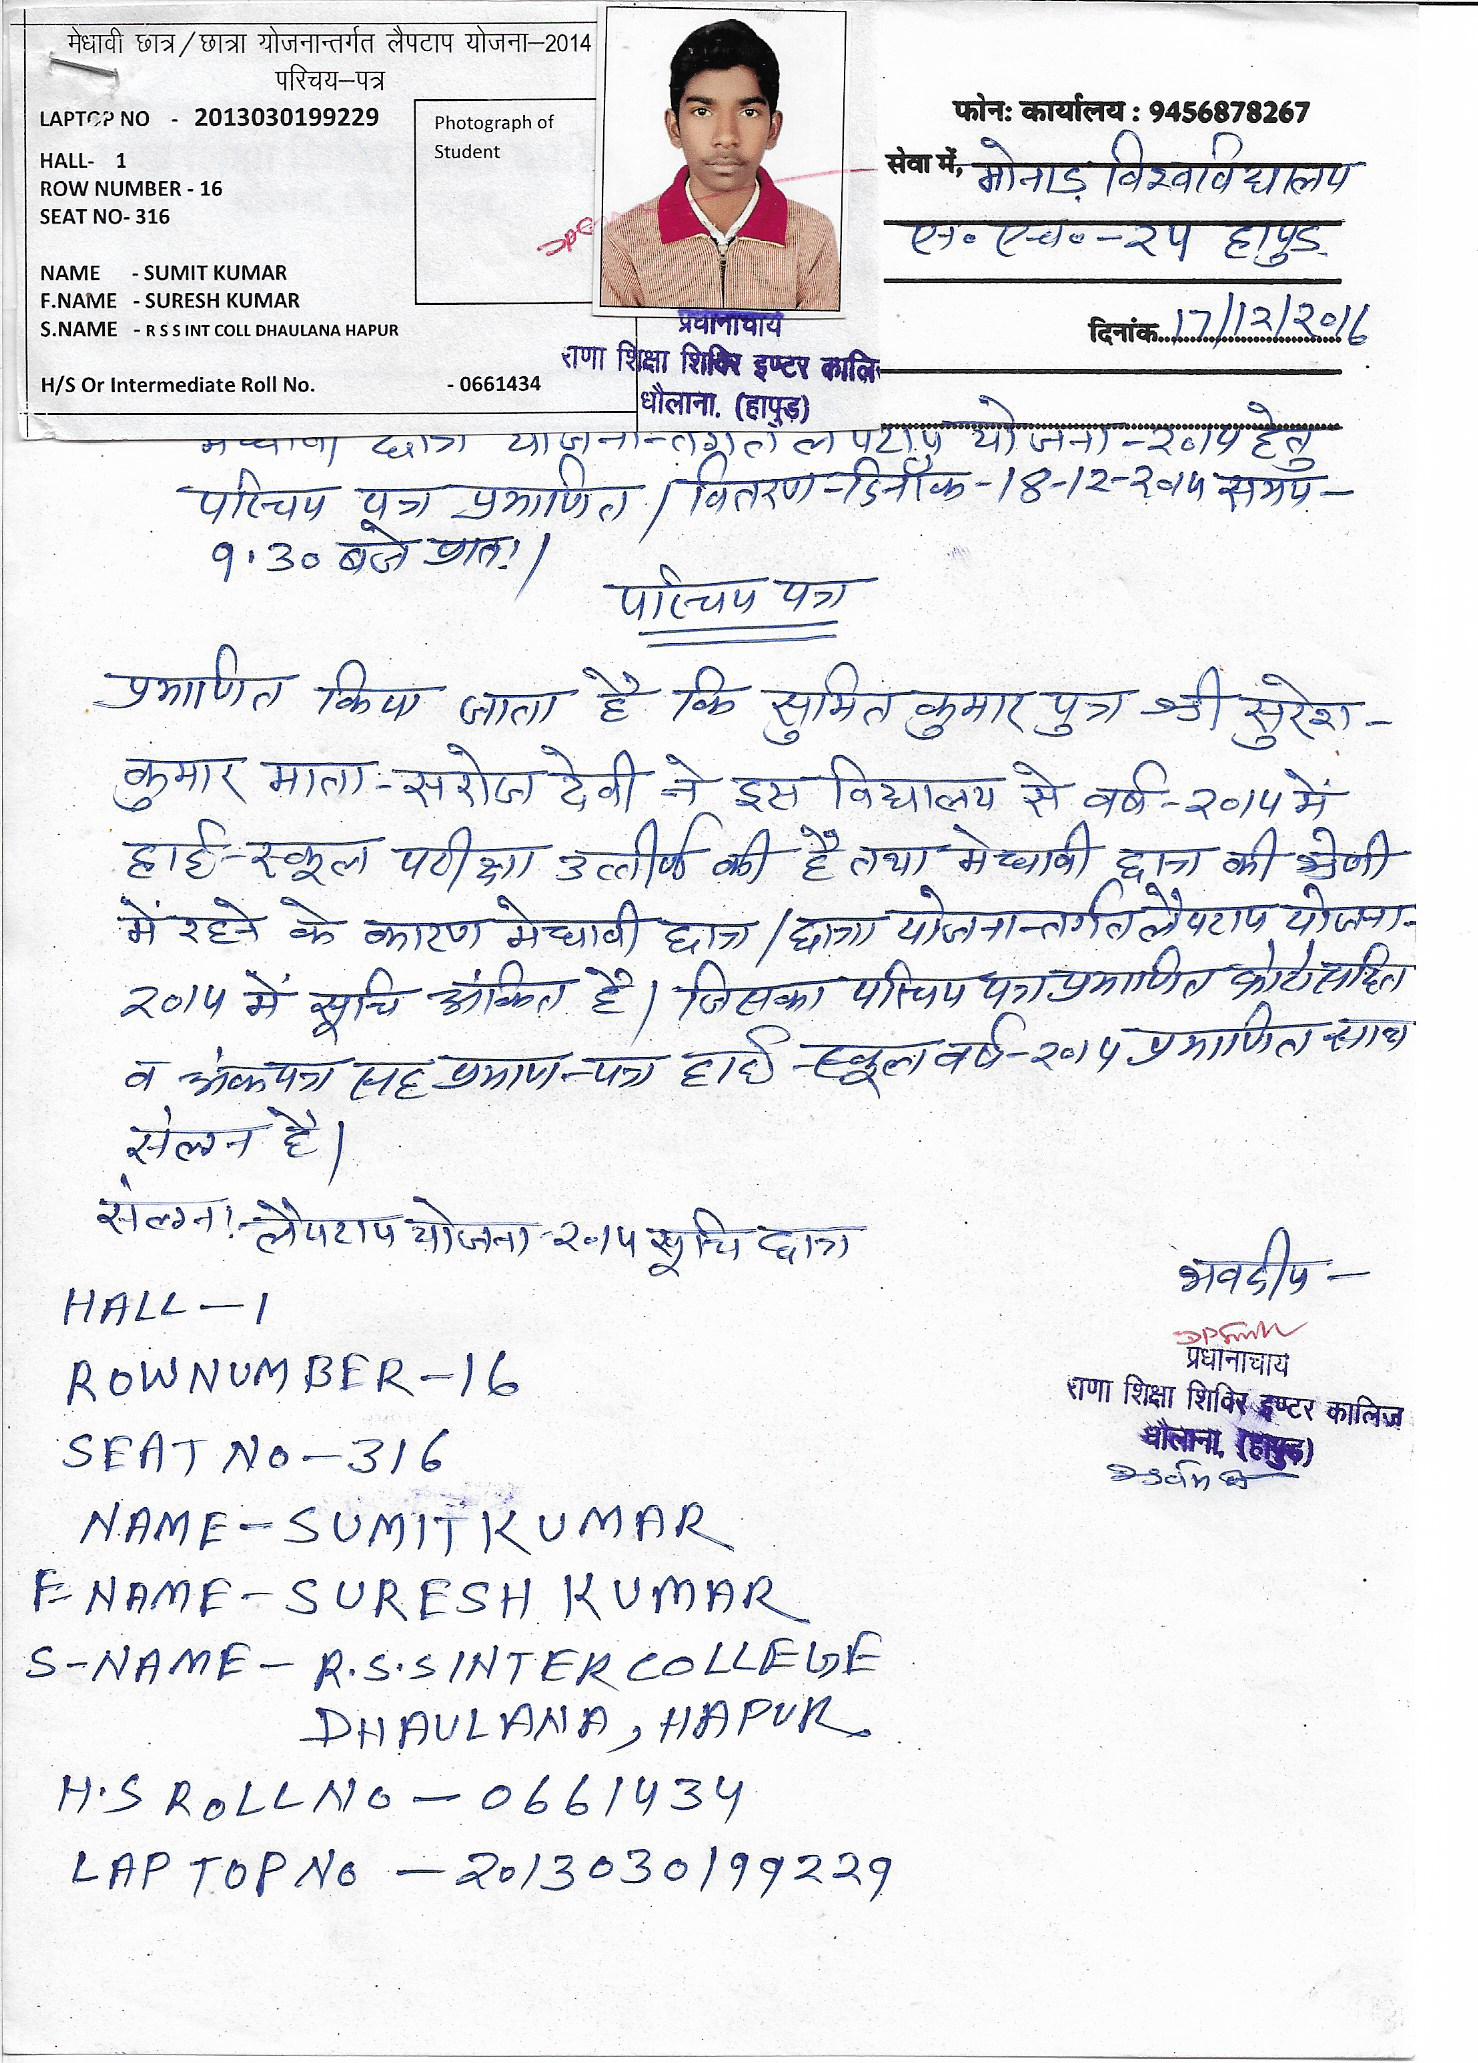 मेधावी छात्र/छात्रा योजनान्तर्गत लैपटाप योजना–2014
परिचय–पत्र
LAPTOP NO - 2013030199229
HALL- 1
ROW NUMBER - 16
SEAT NO- 316
NAME - SUMIT KUMAR
F.NAME - SURESH KUMAR
S.NAME - R S S INT COLL DHAULANA HAPUR
H/S Or Intermediate Roll No. - 0661434
Photograph of
Student
प्रधानाचार्य
राणा शिक्षा शिविर इण्टर कालि
धौलाना. (हापुड़)
फोन: कार्यालय : 9456878267
सेवा में, मोनाड़ विश्वविद्यालय
एन० एच०-२५ हापुड़
दिनांक 17/12/2016
मेधावी छात्र योजनान्तर्गत लैपटाप योजना-२०१५ हेतु
परिचय पत्र प्रमाणित / वितरण-दिनाँक-18-12-२०१५ समय-
९.30 बजे प्रातः।
परिचय पत्र
प्रमाणित किया जाता है कि सुमित कुमार पुत्र श्री सुरेश-
कुमार माता-सरोज देवी ने इस विद्यालय से वर्ष-२०१५ में
हाई-स्कूल परीक्षा उत्तीर्ण की है तथा मेधावी छात्र की श्रेणी
में रहने के कारण मेधावी छात्र/छात्रा योजनान्तर्गत लैपटाप योजना-
२०१५ में सूचि अंकित है। जिसका परिचय पत्र प्रमाणित फोटो सहित
व अंकपत्र सह प्रमाण-पत्र हाई-स्कूल वर्ष-२०१५ प्रमाणित साथ
संलग्न है।
संलग्न:-लैपटाप योजना-२०१५ सूचि छात्र
भवदीय-
HALL-1
ROW NUMBER-16
SEAT NO-316
NAME-SUMIT KUMAR
F-NAME-SURESH KUMAR
S-NAME- R.S.S INTER COLLEGE
DHAULANA, HAPUR
H.S ROLL NO - 0661434
LAPTOP NO - 2013030199229
प्रधानाचार्य
राणा शिक्षा शिविर इण्टर कालिज
धौलाना. (हापुड़)